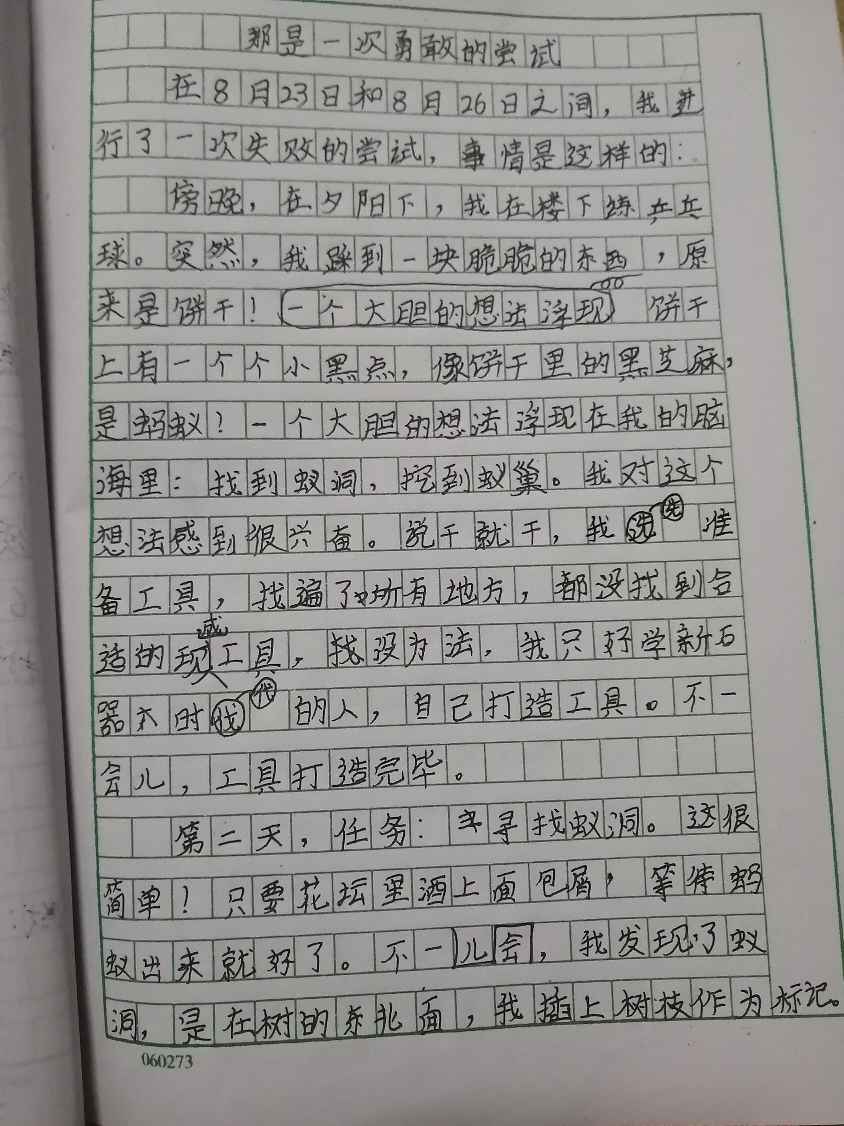 那是一次勇敢的尝试
在8月23日和8月26日之间，我进
行了一次失败的尝试，事情是这样的：
傍晚，在夕阳下，我在楼下练乒乓
球。突然，我踩到一块脆脆的东西，原
来是饼干！一个大胆的想法浮现 饼干
上有一个个小黑点，像饼干里的黑芝麻，
是蚂蚁！一个大胆的想法浮现在我的脑
海里：找到蚁洞，挖到蚁巢。我对这个
想法感到很兴奋。说干就干，我先准
备工具，找遍了所有地方，都没找到合
适的现成工具，找没办法，我只好学新石
器时代的人，自己打造工具。不一
会儿，工具打造完毕。
第二天，任务：寻找蚁洞。这很
简单！只要花坛里洒上面包屑，等待蚂
蚁出来就好了。不一儿会，我发现了蚁
洞，是在树的东北面，我插上树枝作为标记。
060273